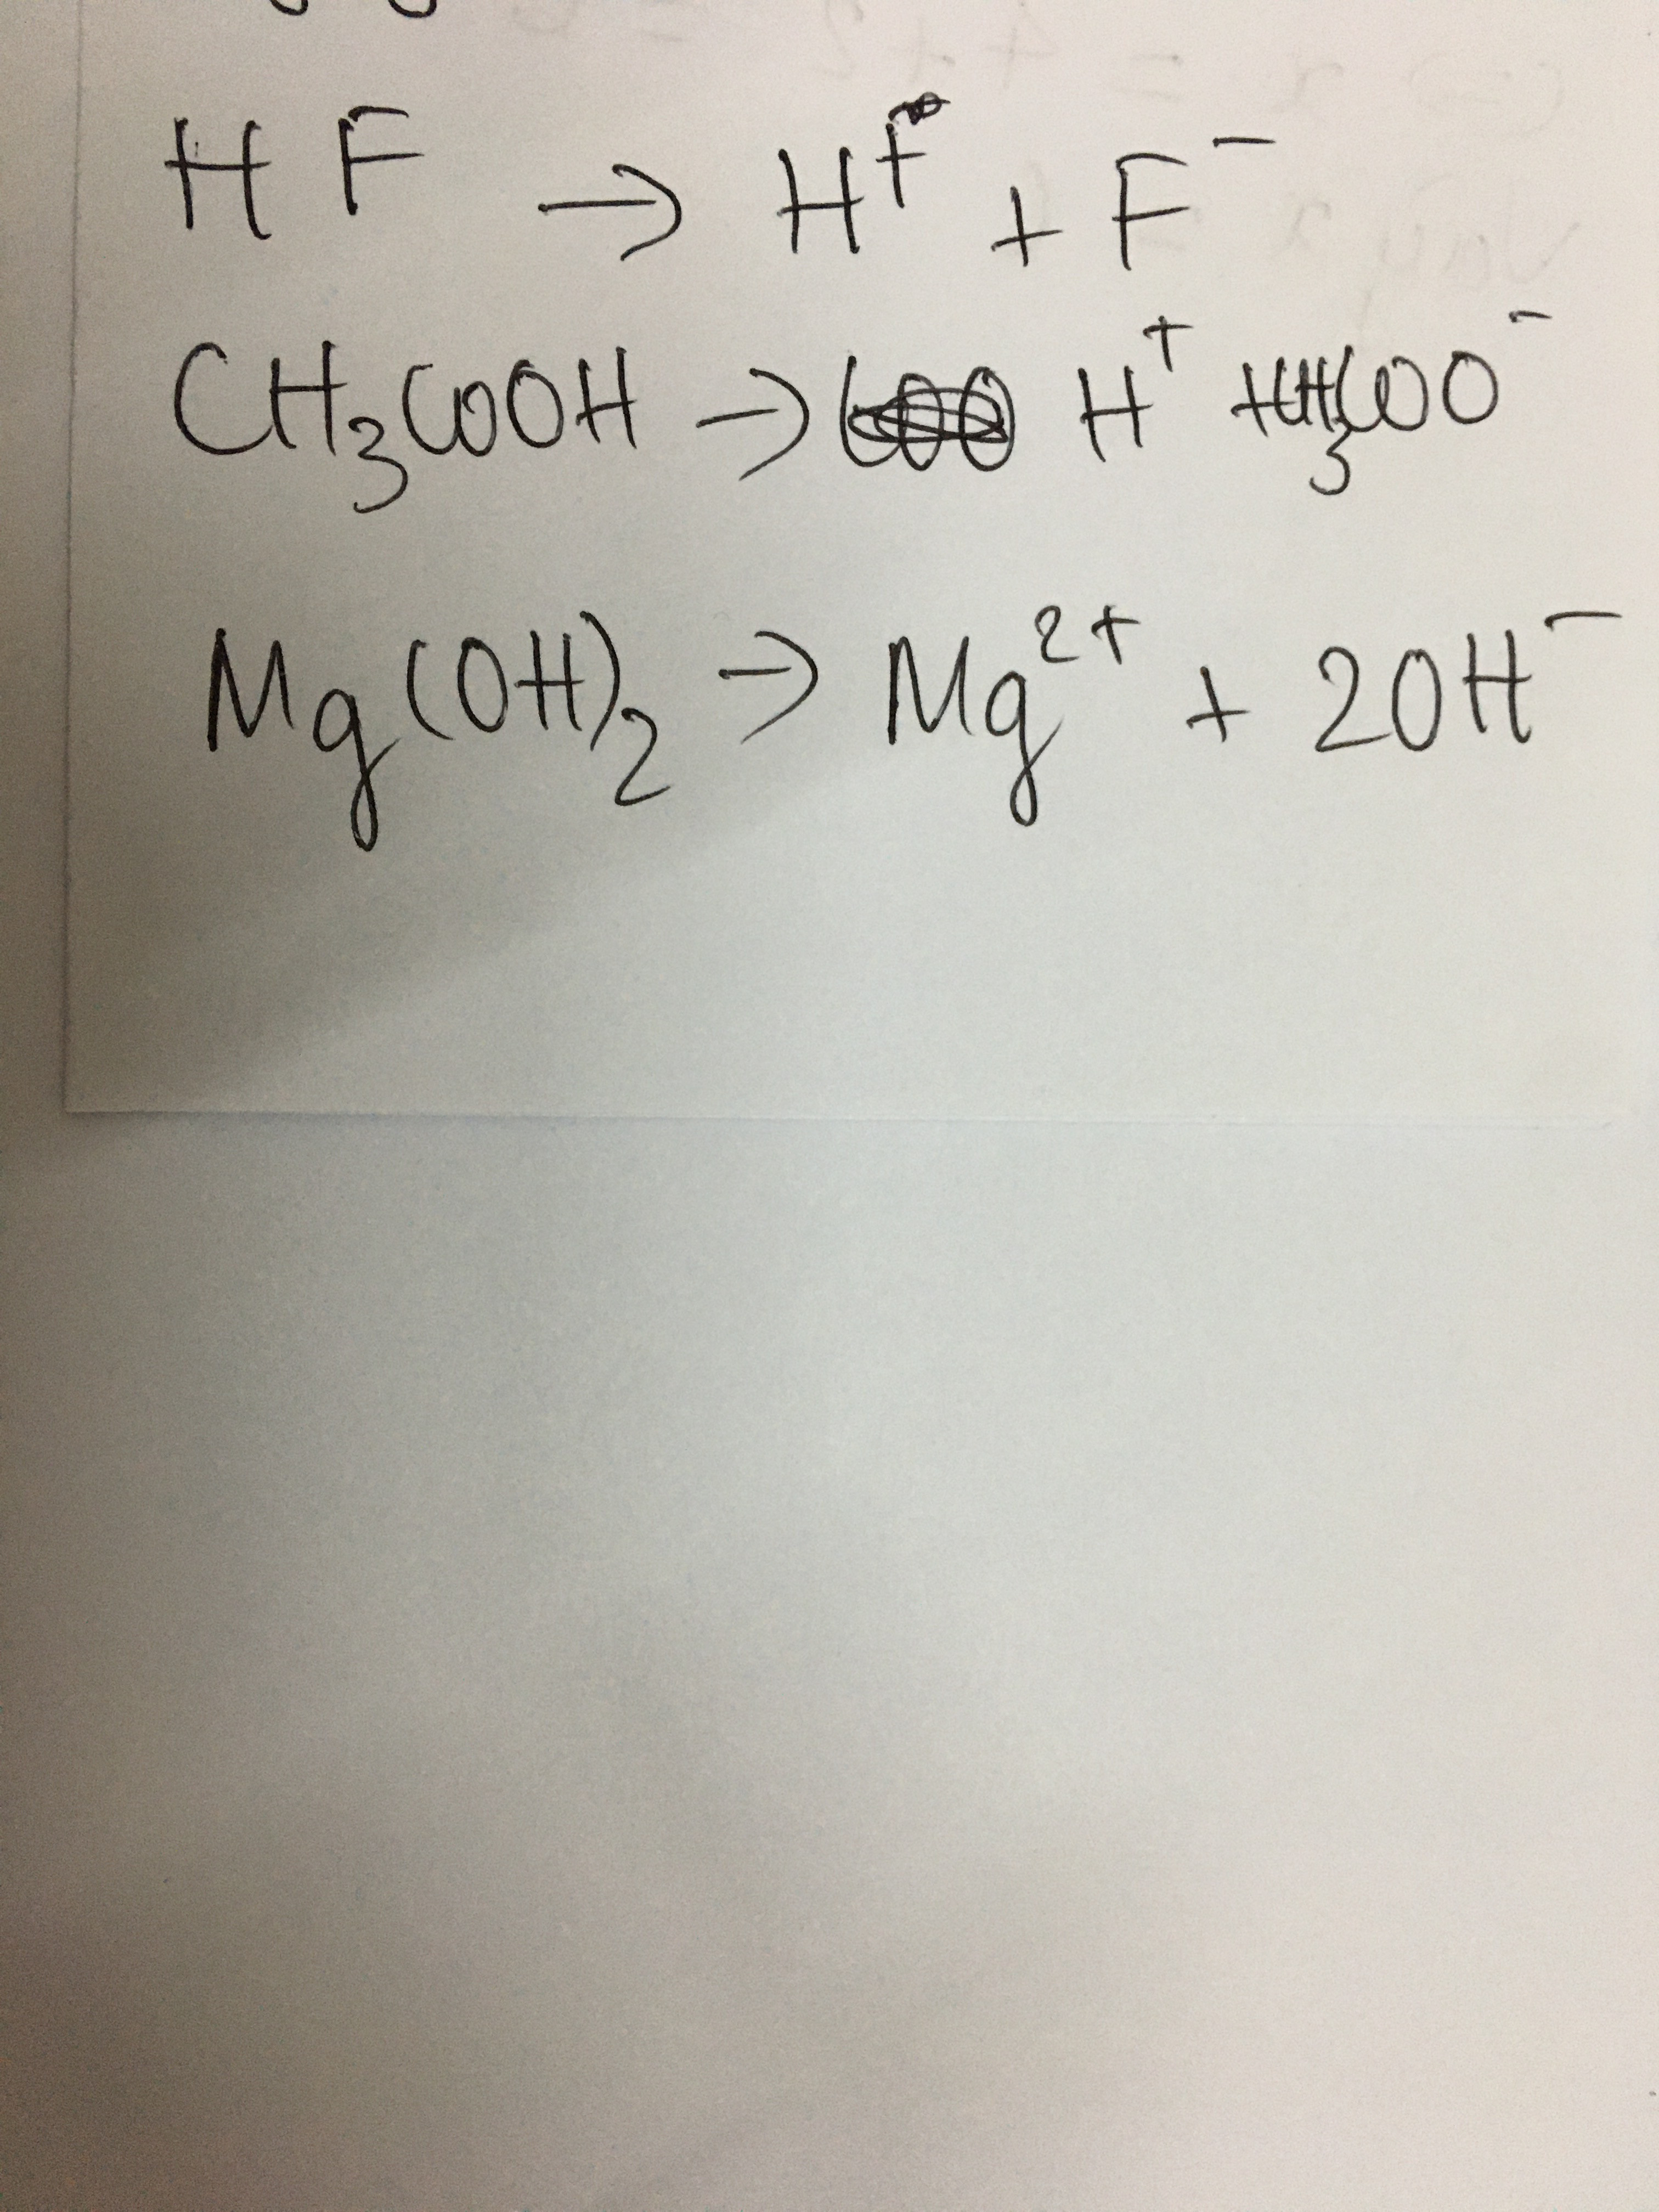 HF → H⁺ + F⁻
CH₃COOH → H⁺ + CH₃COO⁻
Mg(OH)₂ → Mg²⁺ + 2OH⁻